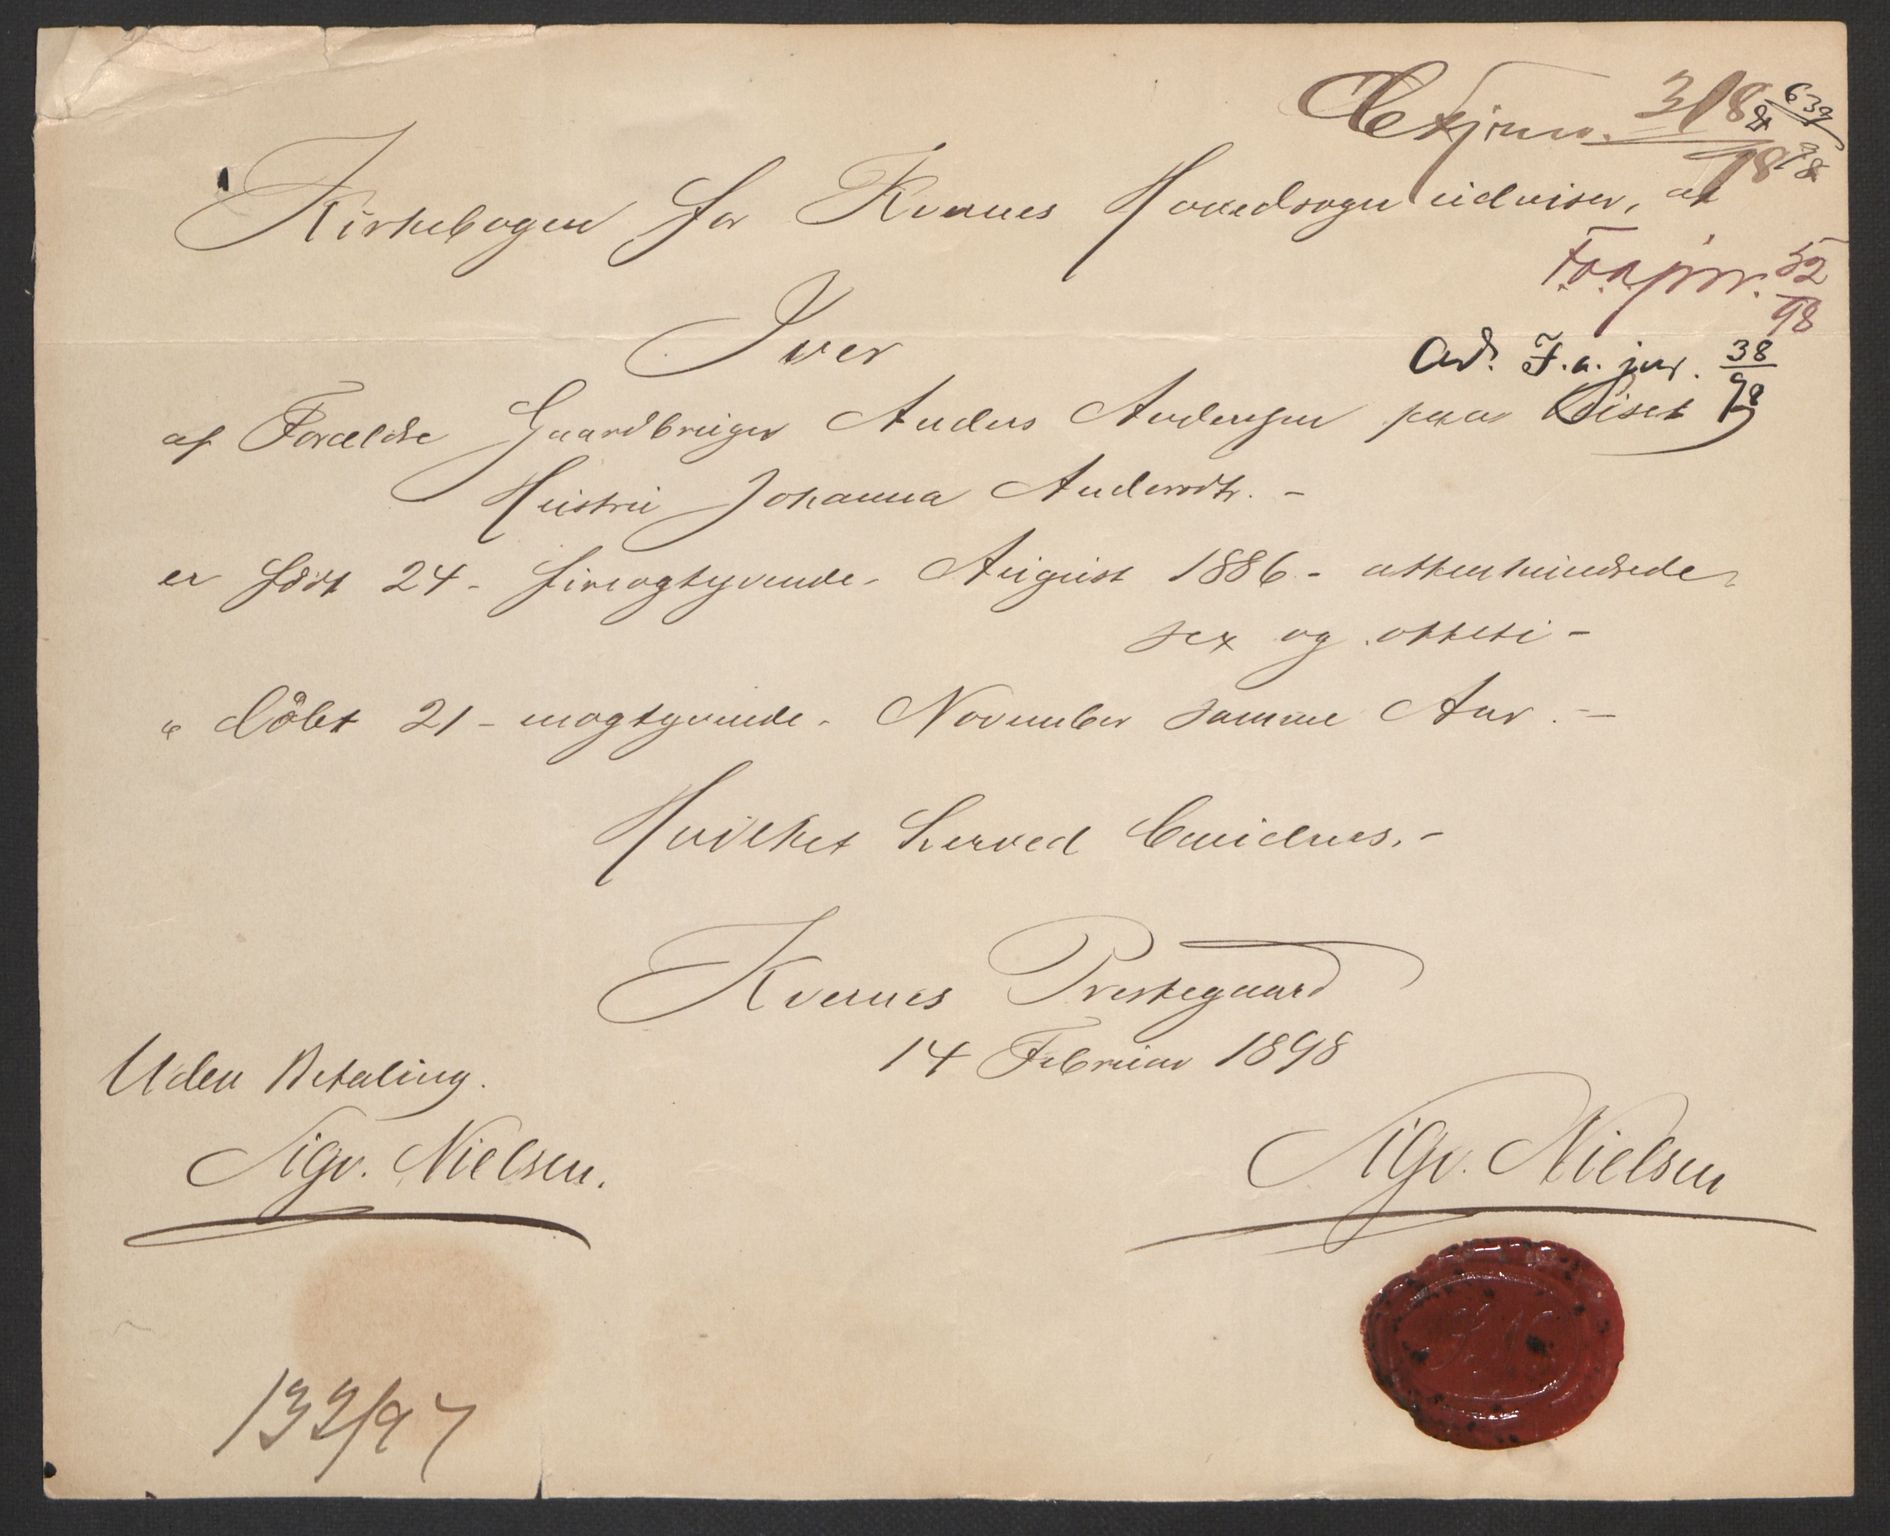 318 & 639
98 98
Kirkebogen for Kvernes Hovedsogn udviser, at
F.a.jnr. 52
98
Iver
Ad. F.a. jnr. 38
98
af Forældre Gaardbruger Anders Andersen paa
Hustru Johanna Andersdtr. -
er født 24 - fireogtyvende - August 1886 - attenhundrede
sex og otteti -
" døbt 21 - enogtyvende - November samme Aar. -
Hvilket herved bevidnes. -
Kvernes Prestegaard
14 Februar 1898
Uden Betaling.
Sigv. Nielsen.
Sigv. Nielsen
132/97